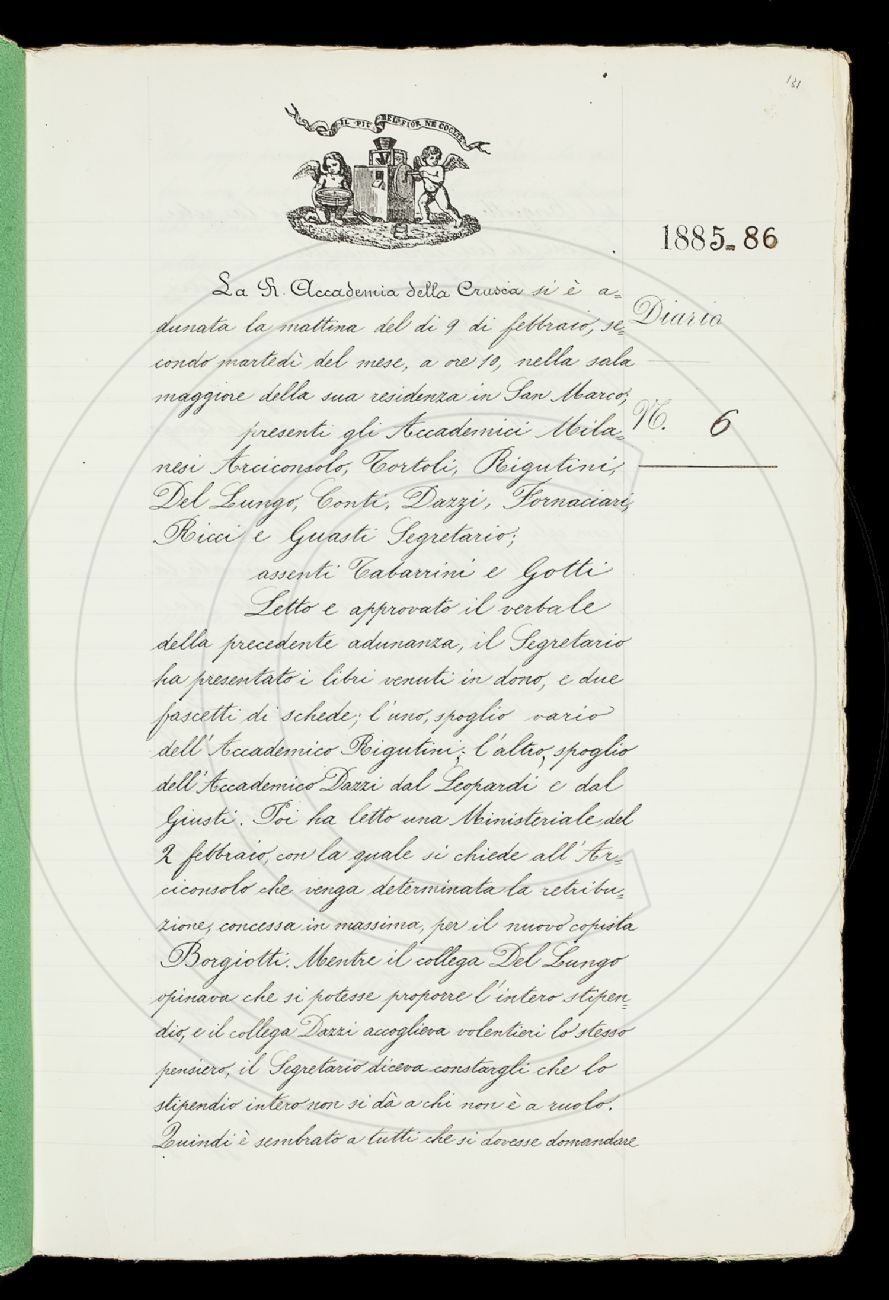 131
IL PIÙ BEL FIOR NE COGLIE
1885-86
La R. Accademia della Crusca si è a=
dunata la mattina del dì 9 di febbraio, se=
condo martedì del mese, a ore 10, nella sala
maggiore della sua residenza in San Marco;
Diario
N. 6
presenti gli Accademici Mila=
nesi Arciconsolo, Tortoli, Rigutini,
Del Lungo, Conti, Dazzi, Fornaciari,
Ricci e Guasti Segretario;
assenti Tabarrini e Gotti
Letto e approvato il verbale
della precedente adunanza, il Segretario
ha presentato i libri venuti in dono, e due
fascetti di schede; l'uno, spoglio vario
dell'Accademico Rigutini; l'altro, spoglio
dell'Accademico Dazzi dal Leopardi e dal
Giusti. Poi ha letto una Ministeriale del
2 febbraio, con la quale si chiede all'Ar=
ciconsolo che venga determinata la retribu=
zione, concessa in massima, per il nuovo copista
Borgiotti. Mentre il collega Del Lungo
opinava che si potesse proporre l'intero stipen=
dio, e il collega Dazzi accoglieva volentieri lo stesso
pensiero, il Segretario diceva constargli che lo
stipendio intero non si dà a chi non è a ruolo.
Quindi è sembrato a tutti che si dovesse domandare